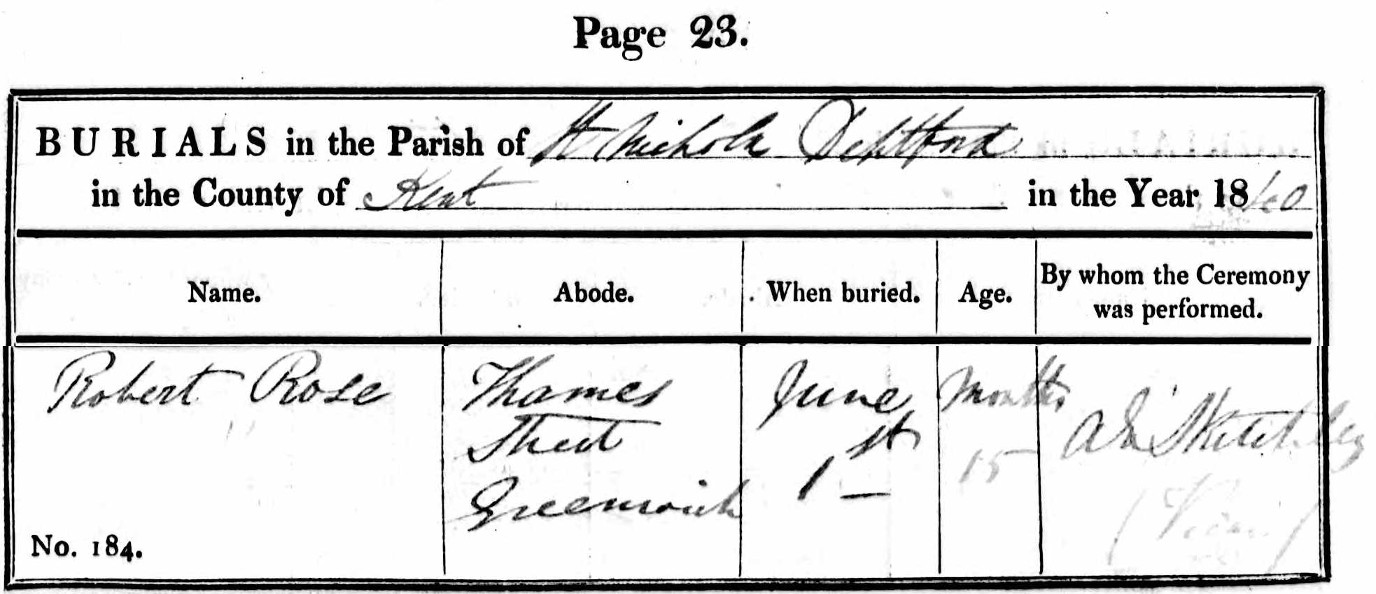 Page 23.
BURIALS in the Parish of St Nichola Deptford
in the County of Kent in the Year 1840
Name. Abode. When buried. Age. By whom the Ceremony was performed.
Robert Rose
Thames
Street
Greenwich
June
1st
Months
15
(Vicar)
No. 184.